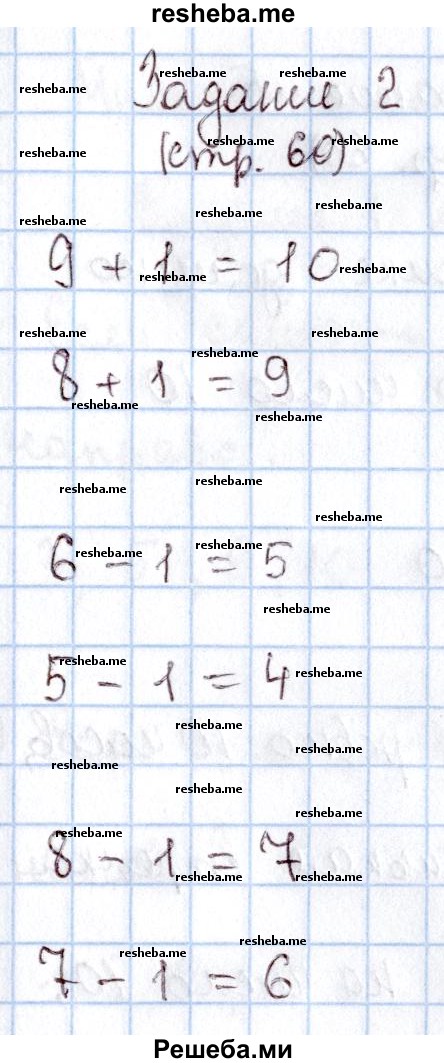 resheba.me
Задание 2
(стр. 60)
9 + 1 = 10
8 + 1 = 9
6 - 1 = 5
5 - 1 = 4
8 - 1 = 7
7 - 1 = 6
Решеба.ми